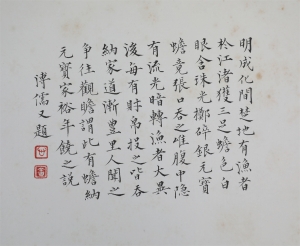 明成化間楚地有漁者
於江渚獲三足蟾色白
眼含珠光擲碎銀元寶
蟾竟張口吞之唯腹中隱
有流光暗轉漁者大異
後每有財帛投之皆吞
納家道漸豊里人聞之
爭往觀瞻謂此有蟾納
元寶家裕年饒之說
溥儒又題